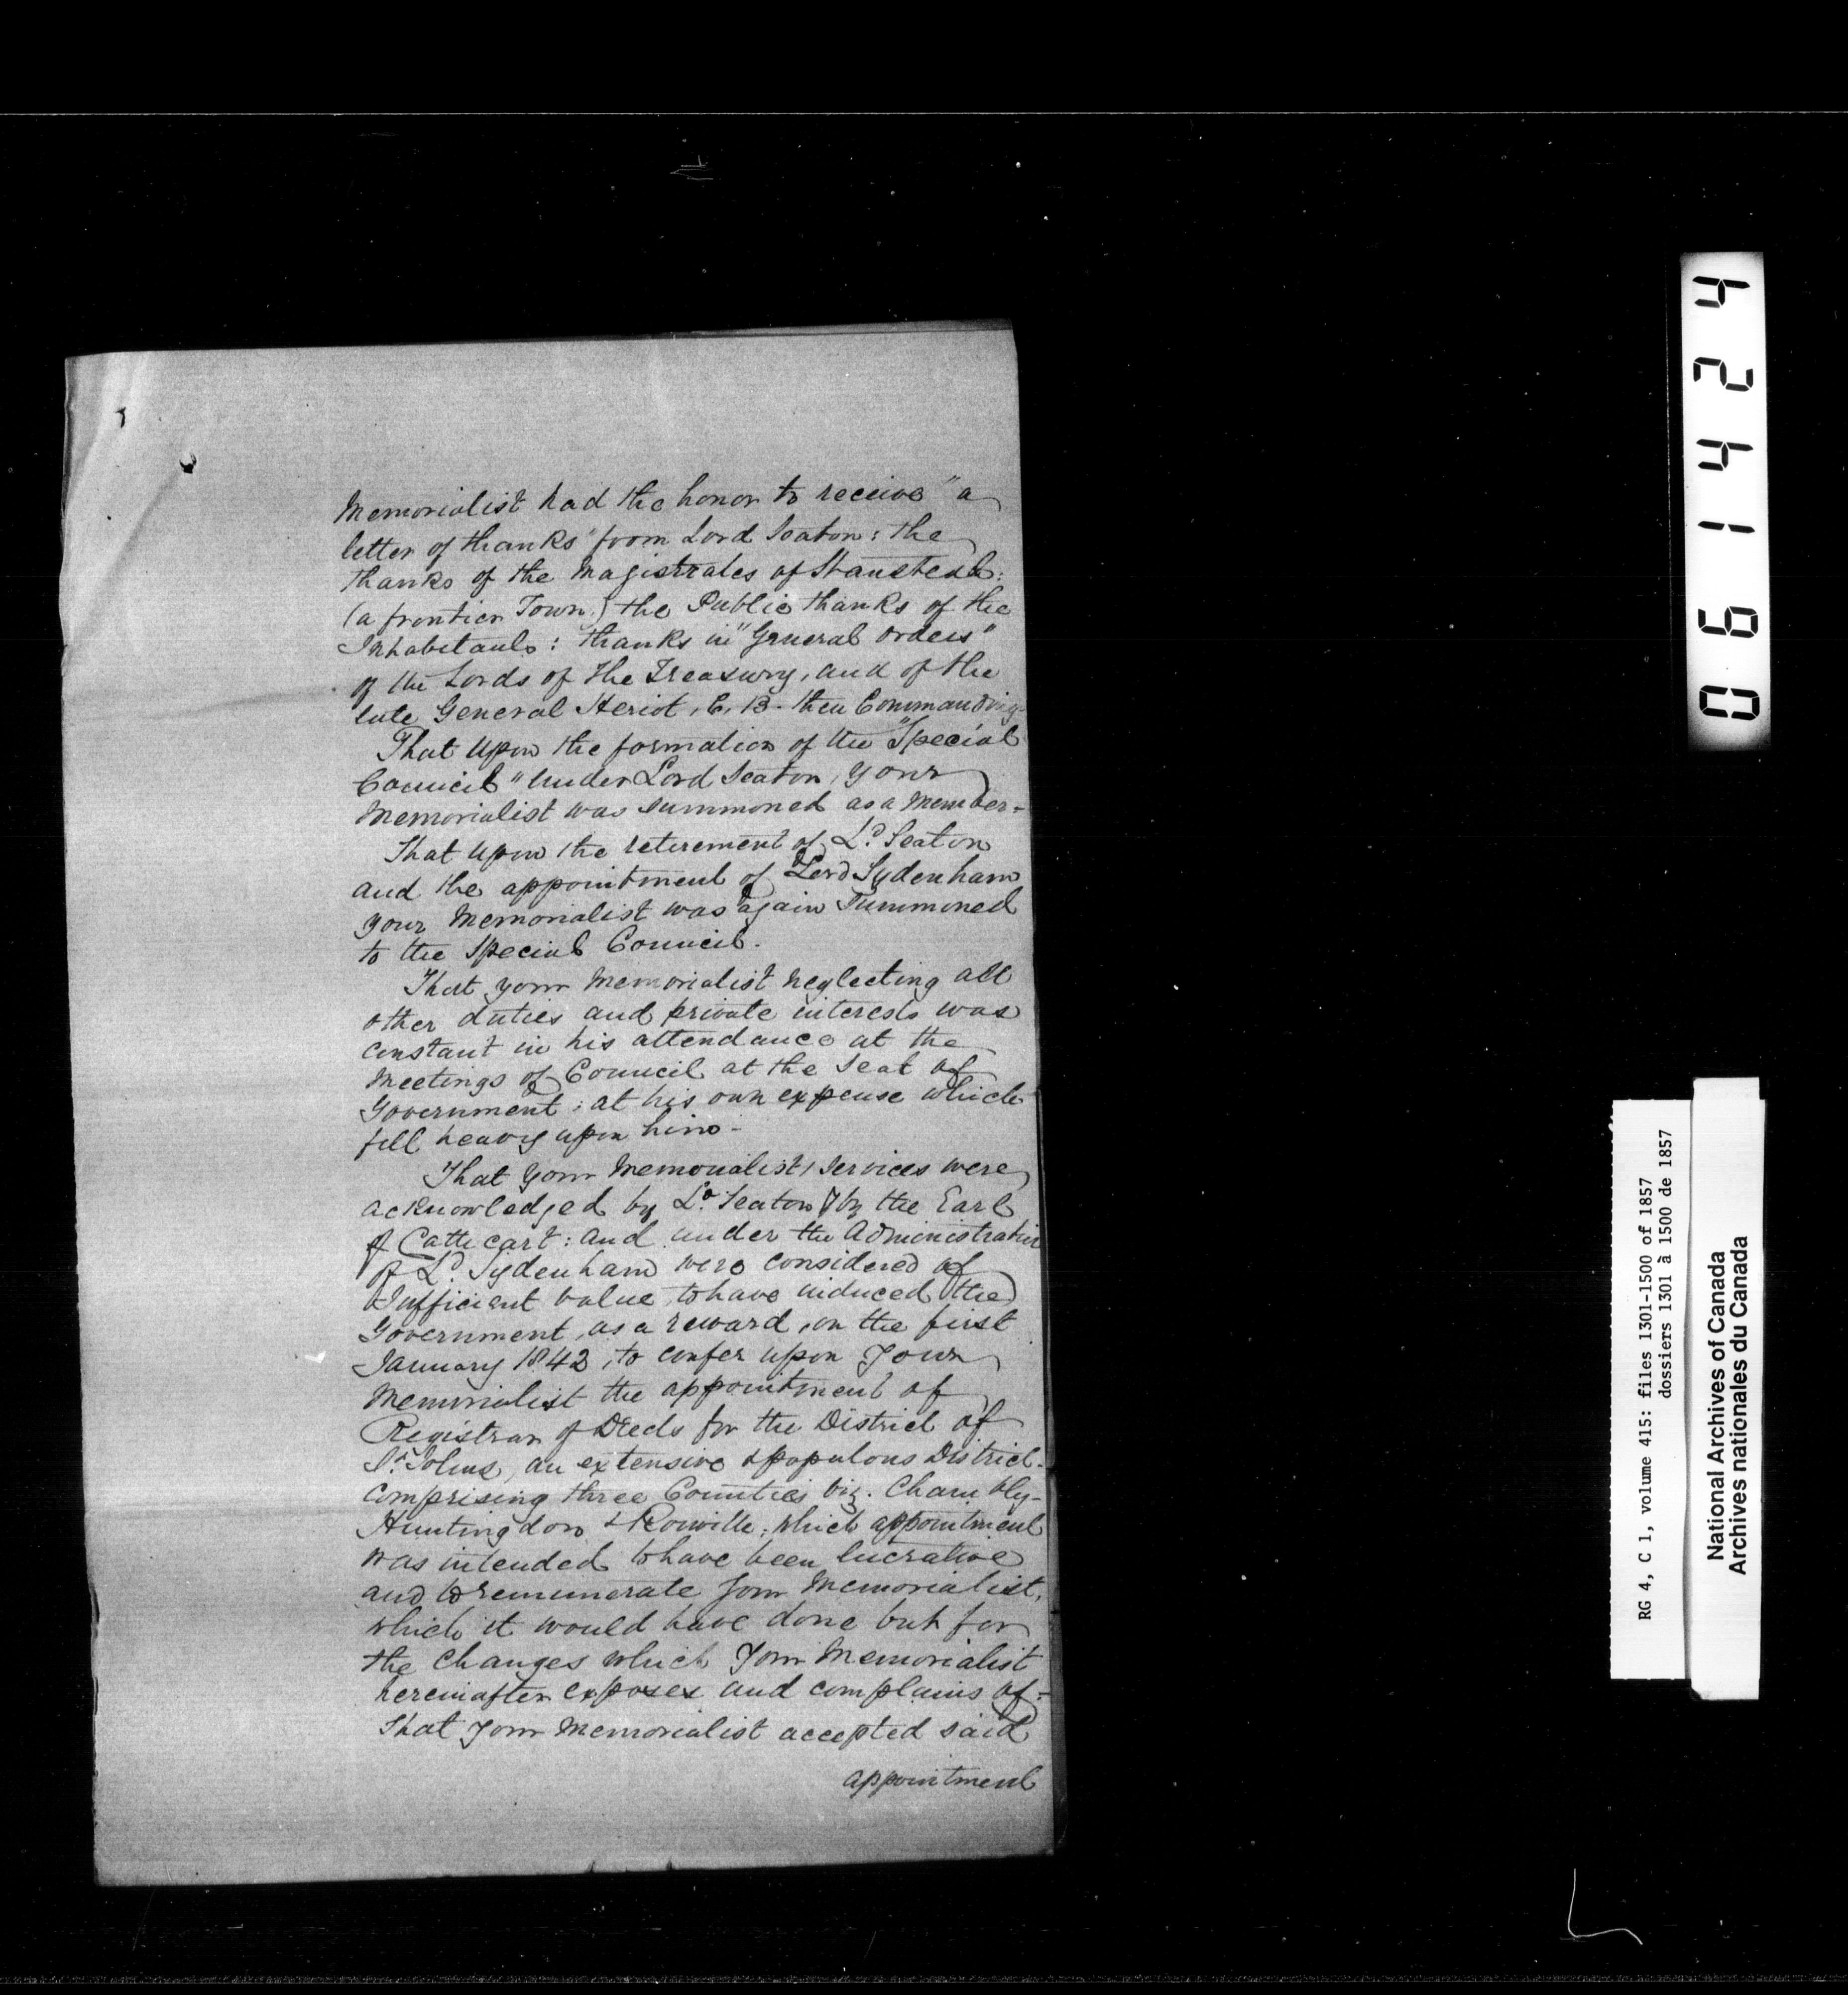 Memorialist had the honor to receive "a
letter of thanks" from Lord Seaton: the
thanks of the Magistrates of Stanstead:
(a frontier Town,) the Public thanks of the
Inhabitants: thanks in "General orders"
of the Lords of the Treasury, and of the
late General Heriot, C. B. then Commanding-
That upon the formation of the "Special
Council" under Lord Seaton, your
Memorialist was summoned as a Member-
That upon the retirement of Ld. Seaton
and the appointment of Lord Sydenham
your Memorialist was again summoned
to the Special Council.
That your Memorialist neglecting all
other duties and private interests was
constant in his attendance at the
Meetings of Council at the Seat of
Government; at his own expense which
fell heavy upon him-
That your Memorialists' services were
acknowledged by Ld. Seaton & by the Earl
of Cathcart: and under the Administration
of Ld. Sydenham were considered of
sufficient value, to have induced the
Government, as a reward, on the first
January 1842, to confer upon Your
Memorialist the appointment of
Registrar of Deeds for the District of
St. Johns, an extensive & populous District-
comprising three Counties viz. Chambly-
Huntingdon & Rouville; which appointment
was intended to have been lucrative
and to remunerate Your Memorialist,
which it would have done but for
the Changes which Your Memorialist
hereinafter exposes and complains of-
That Your Memorialist accepted said
appointment
061424
RG 4, C 1, volume 415: files 1301-1500 of 1857
dossiers 1301 à 1500 de 1857
National Archives of Canada
Archives nationales du Canada